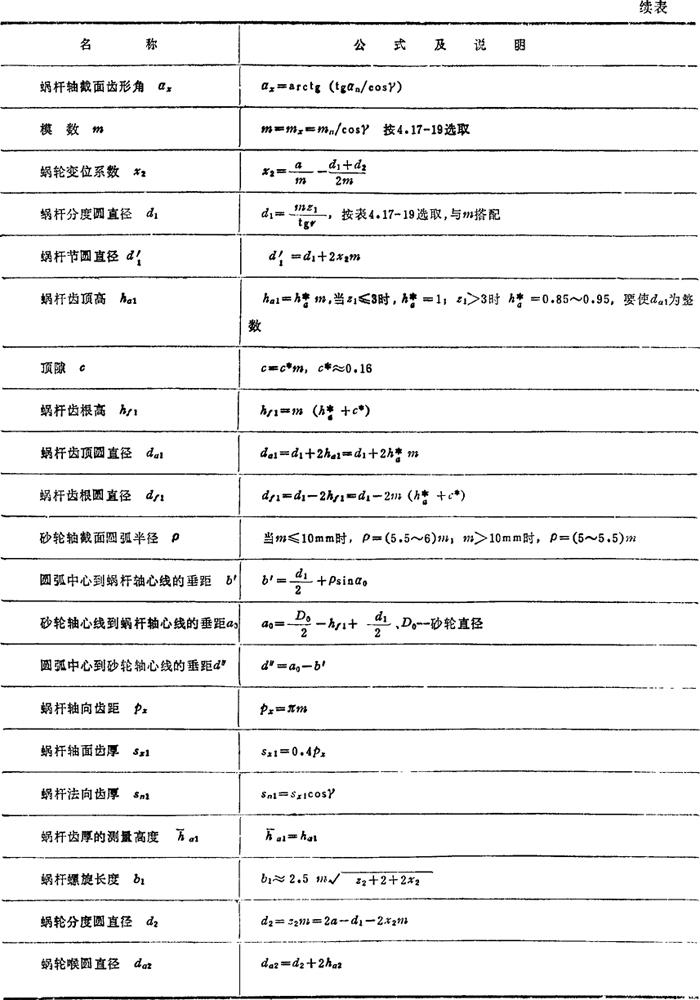 续表
名 称 公 式 及 说 明
蜗杆轴截面齿形角 αx αx=arctg (tgαn/cosγ)
模 数 m m=mx=mn/cosγ 按4.17-19选取
蜗轮变位系数 x2 x2=a/m-(d1+d2)/2m
蜗杆分度圆直径 d1 d1=mz1/tgr, 按表4.17-19选取,与m搭配
蜗杆节圆直径 d′1 d′1=d1+2x2m
蜗杆齿顶高 ha1 ha1=h*a m,当z1≤3时, h*a=1; z1>3时 h*a=0.85~0.95, 要使da1为整
数
顶隙 c c=c*m, c*≈0.16
蜗杆齿根高 hf1 hf1=m (h*a+c*)
蜗杆齿顶圆直径 da1 da1=d1+2ha1=d1+2h*a m
蜗杆齿根圆直径 df1 df1=d1-2hf1=d1-2m (h*a+c*)
砂轮轴截面圆弧半径 ρ 当m≤10mm时, ρ=(5.5~6)m; m>10mm时, ρ=(5~5.5)m
圆弧中心到蜗杆轴心线的垂距 b′ b′=d1/2+ρsinα0
砂轮轴心线到蜗杆轴心线的垂距a0 a0=D0/2-hf1+d1/2、D0—砂轮直径
圆弧中心到砂轮轴心线的垂距d″ d″=a0-b′
蜗杆轴向齿距 px px=πm
蜗杆轴面齿厚 sx1 sx1=0.4px
蜗杆法向齿厚 sn1 sn1=sx1cosγ
蜗杆齿厚的测量高度 h̄a1 h̄a1=ha1
蜗杆螺旋长度 b1 b1≈2.5 m√z2+2+2x2
蜗轮分度圆直径 d2 d2=z2m=2a-d1-2x2m
蜗轮喉圆直径 da2 da2=d2+2ha2